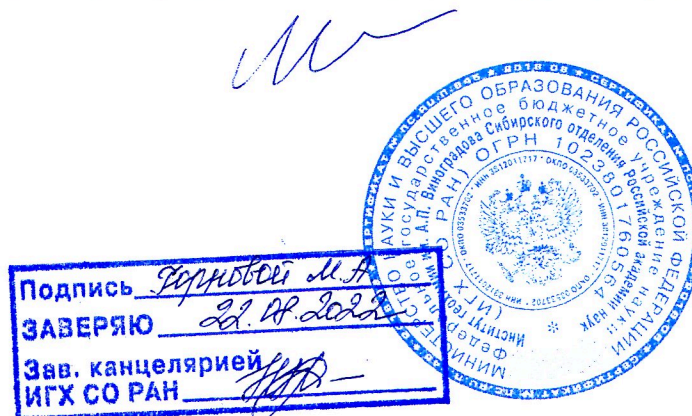 Подпись Горновой М.А
ЗАВЕРЯЮ 22.08.2022
Зав. канцелярией
ИГХ СО РАН
МИНИСТЕРСТВО НАУКИ И ВЫСШЕГО ОБРАЗОВАНИЯ РОССИЙСКОЙ ФЕДЕРАЦИИ
Федеральное государственное бюджетное учреждение науки
Институт геохимии им. А.П. Виноградова Сибирского отделения Российской академии наук
(ИГХ СО РАН) ОГРН 1023801760564